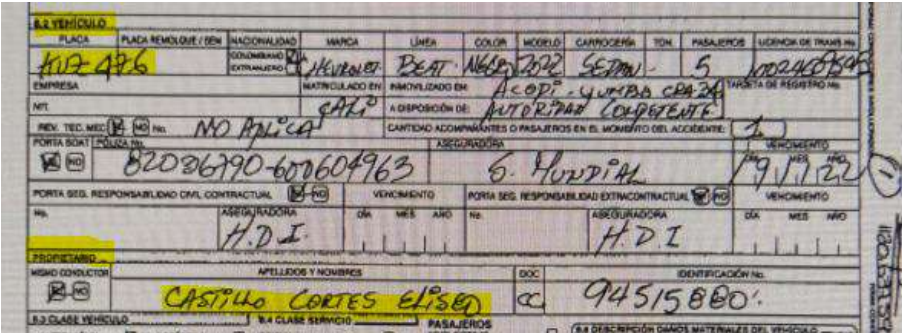 8.2 VEHÍCULO
PLACA PLACA REMOLQUE / SEM NACIONALIDAD MARCA LÍNEA COLOR MODELO CARROCERÍA TON. PASAJEROS LICENCIA DE TRANS No.
476 COLOMBIANO CHEVROLET BEAT NEGRO 2022 SEDAN - 5
EXTRANJERO
EMPRESA MATRICULADO EN: INMOVILIZADO EN: ACOPI - YUMBO CRA 24 TARJETA DE REGISTRO No.
NIT. CALI A DISPOSICIÓN DE: AUTORIDAD COMPETENTE
REV. TEC. MEC NO No. NO APLICA CANTIDAD ACOMPAÑANTES O PASAJEROS EN EL MOMENTO DEL ACCIDENTE: 1
PORTA SOAT PÓLIZA No. ASEGURADORA VENCIMIENTO
NO S. MUNDIAL DÍA MES AÑO
PORTA SEG. RESPONSABILIDAD CIVIL CONTRACTUAL NO VENCIMIENTO PORTA SEG. RESPONSABILIDAD EXTRACONTRACTUAL NO VENCIMIENTO
No. ASEGURADORA DÍA MES AÑO No. ASEGURADORA DÍA MES AÑO
H.D.I. H.D.I
PROPIETARIO
MISMO CONDUCTOR APELLIDOS Y NOMBRES DOC IDENTIFICACIÓN No.
NO CASTILLO CORTES ELISEO CC 94515880
8.3 CLASE VEHÍCULO 8.4 CLASE SERVICIO PASAJEROS 8.6 DESCRIPCIÓN DAÑOS MATERIALES DEL VEHÍCULO